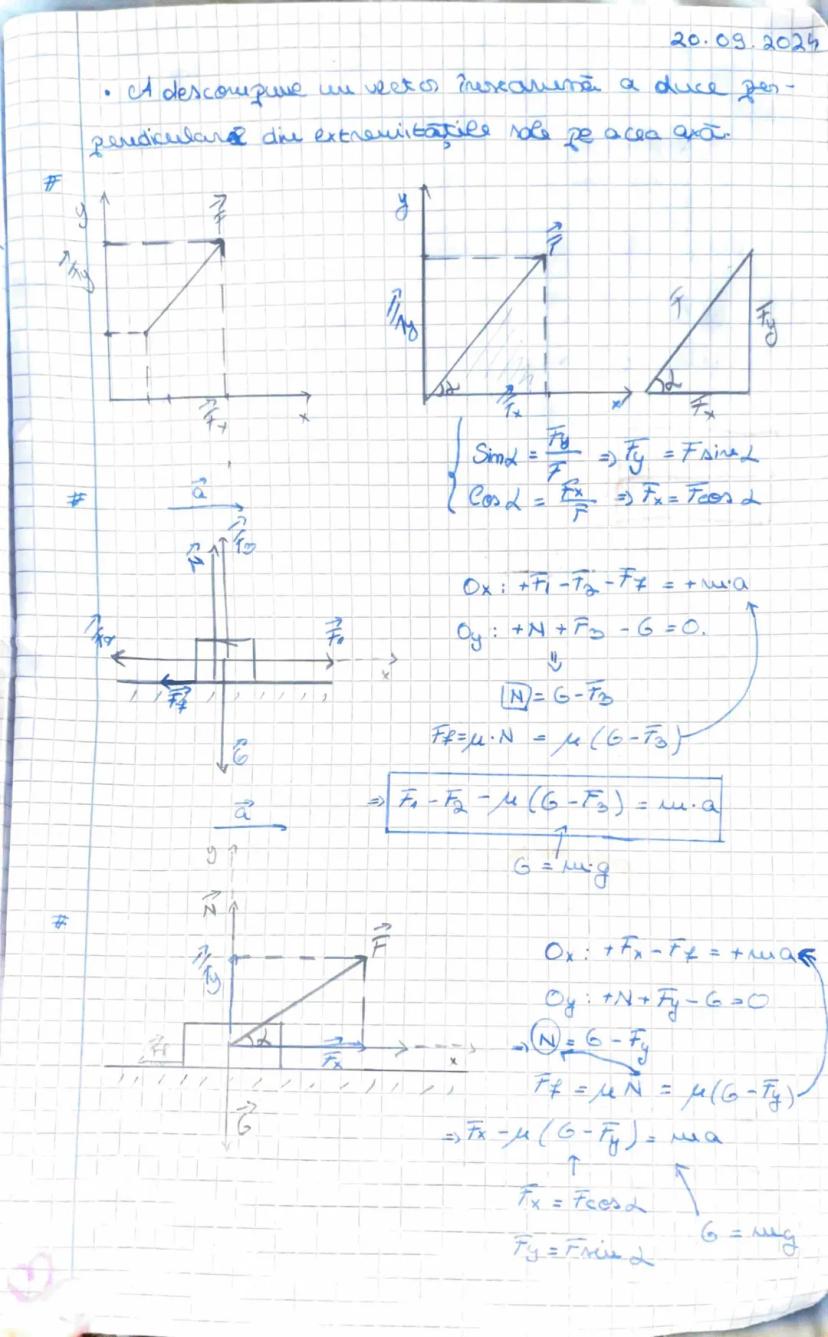 20.09.2024
• A descompune un vector înseamnă a duce per-
pendiculare din extremitățile sale pe acea axă.
#
y
F⃗
F⃗y
F⃗x
x
y
F⃗
F⃗y
α
F⃗x
x
F
Fy
α
Fx
Sinα = Fy/F => Fy = F sin α
Cosα = Fx/F => Fx = F cos α
#
a⃗
N⃗
F⃗3
F⃗2
F⃗1
x
F⃗f
G⃗
Ox: +F1 - F2 - Ff = +m·a
Oy: +N + F3 - G = 0.
⇓
N = G - F3
Ff = μ·N = μ(G - F3)
=> F1 - F2 - μ(G - F3) = m·a
G = m·g
a⃗
y
#
N⃗
F⃗
F⃗y
α
Ff
F⃗x
x
G⃗
Ox: +Fx - Ff = +ma
Oy: +N + Fy - G = 0
=> N = G - Fy
Ff = μN = μ(G - Fy)
=> Fx - μ(G - Fy) = ma
Fx = F cos α
Fy = F sin α
G = mg